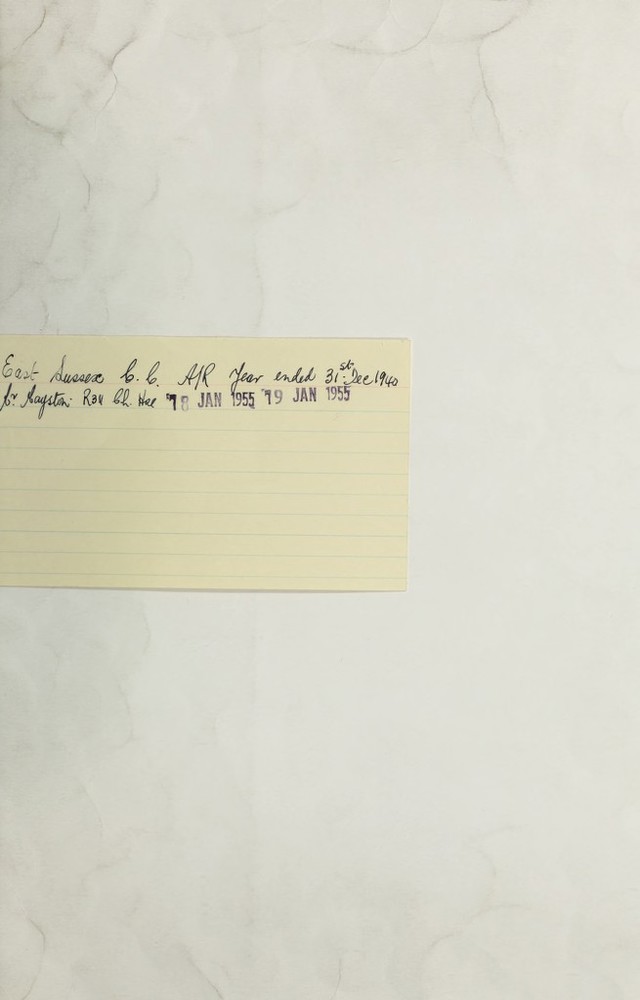 East Sussex C.C. A/R Year ended 31st Dec 1940
Ch. Hse 18 JAN 1955 19 JAN 1955